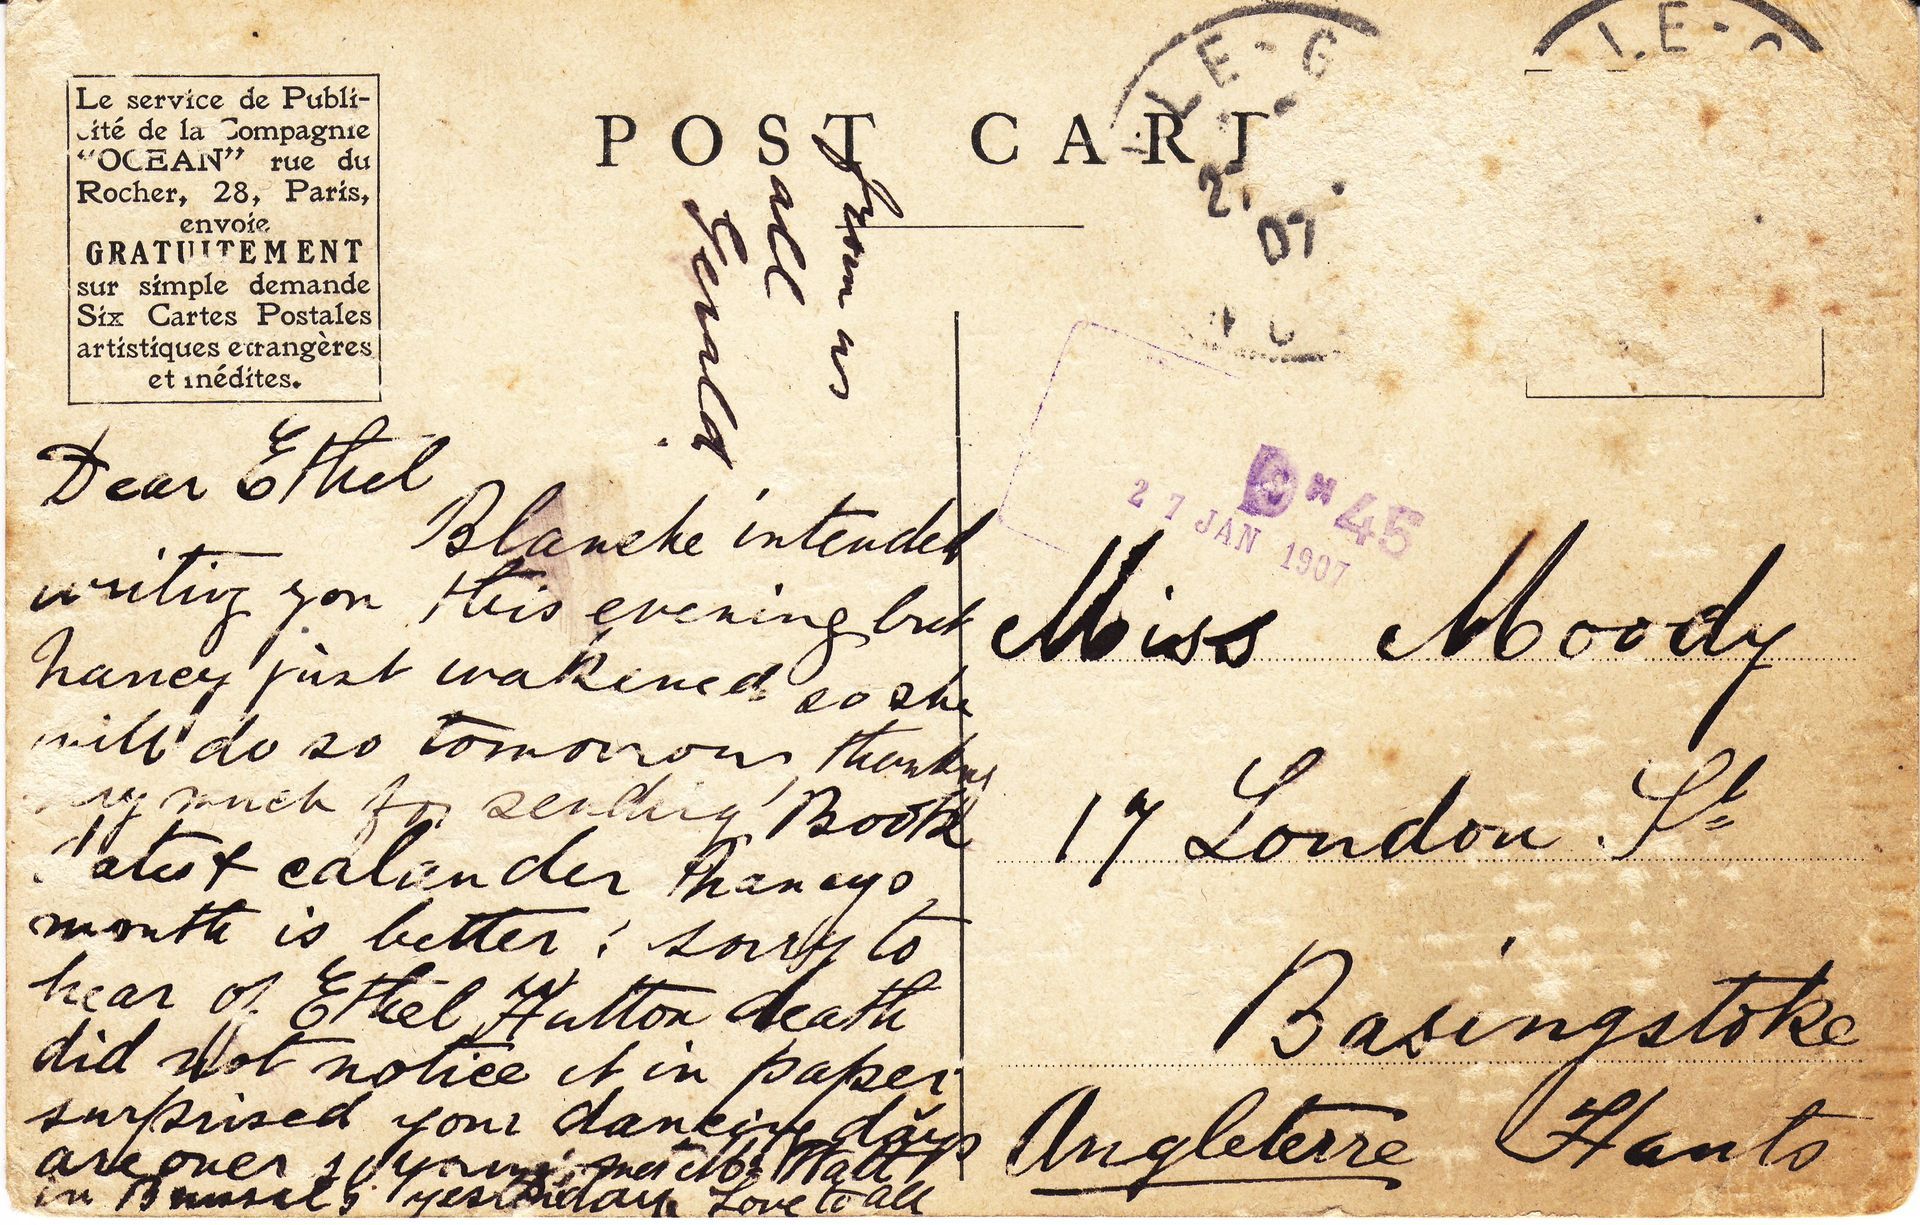 Le service de Publi-
cité de la Compagnie
"OCEAN" rue du
Rocher, 28, Paris,
envoie
GRATUITEMENT
sur simple demande
Six Cartes Postales
artistiques etrangères
et inédites.
POST CARD
LE-G
2
07
LE-G
from us
all
Gerald
45
27 JAN 1907
Dear Ethel
Blanche intended
writing you this evening but
Nancy just wakened so she
will do so tomorrow, thanking
much for sending Book
latest calander Nancys
month is better; sorry to
hear of Ethel Hutton death
did not notice it in paper
surprised your dancing days
are over so young, met Mr Hall
in Brussels yesterday Love to all
Miss Moody
17 London St
Basingstoke
Angleterre Hants